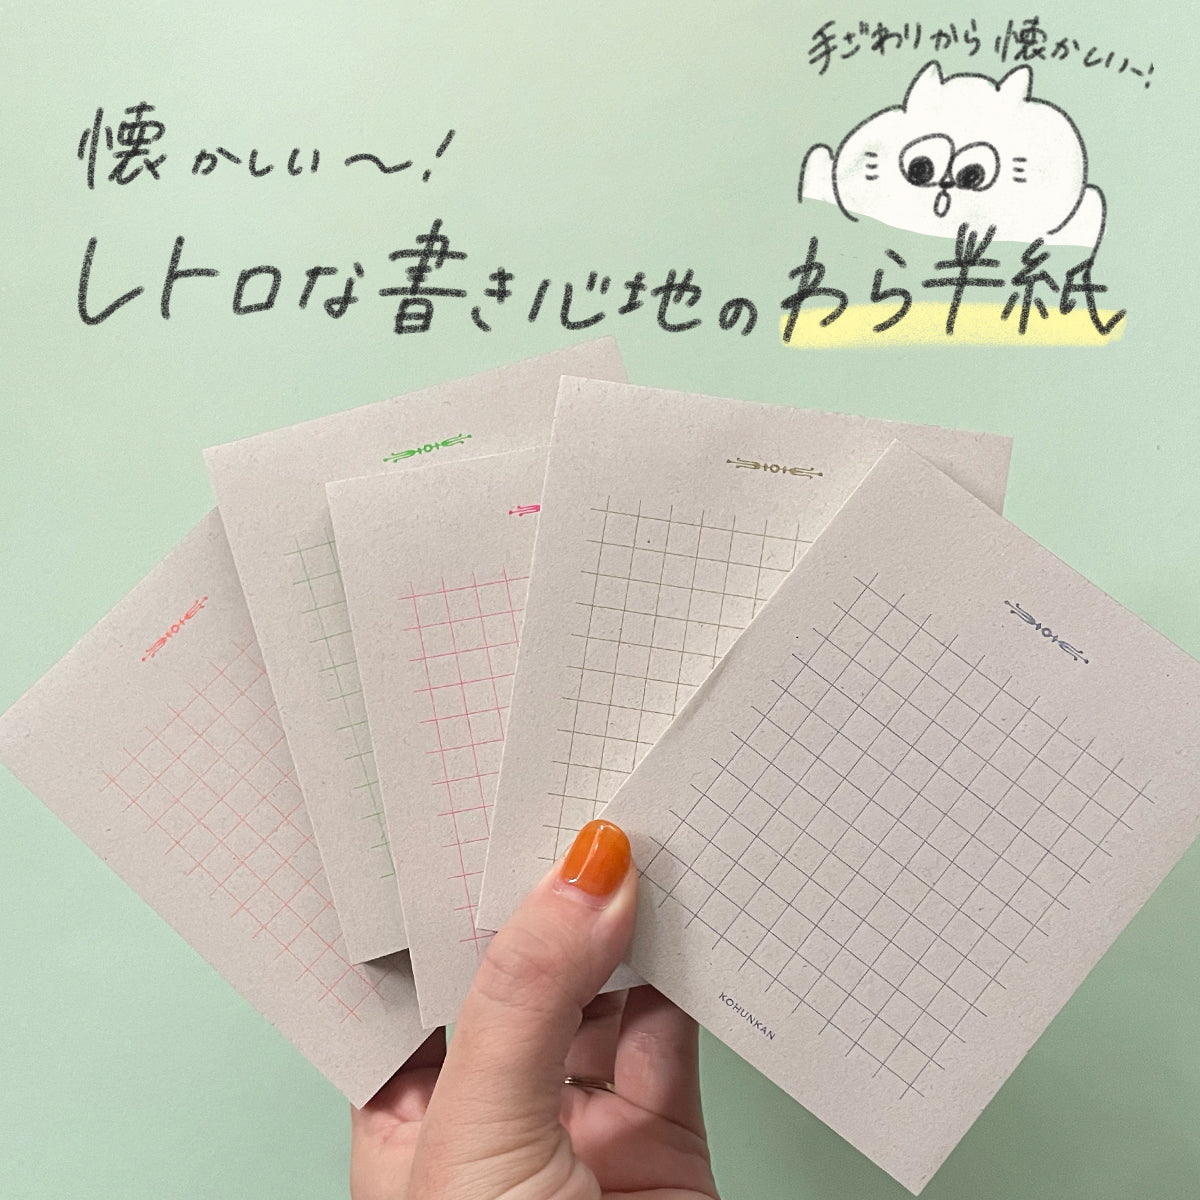 手ざわりから懐かしい〜!
懐かしい〜!
レトロな書き心地のわら半紙
KOHUNKAN